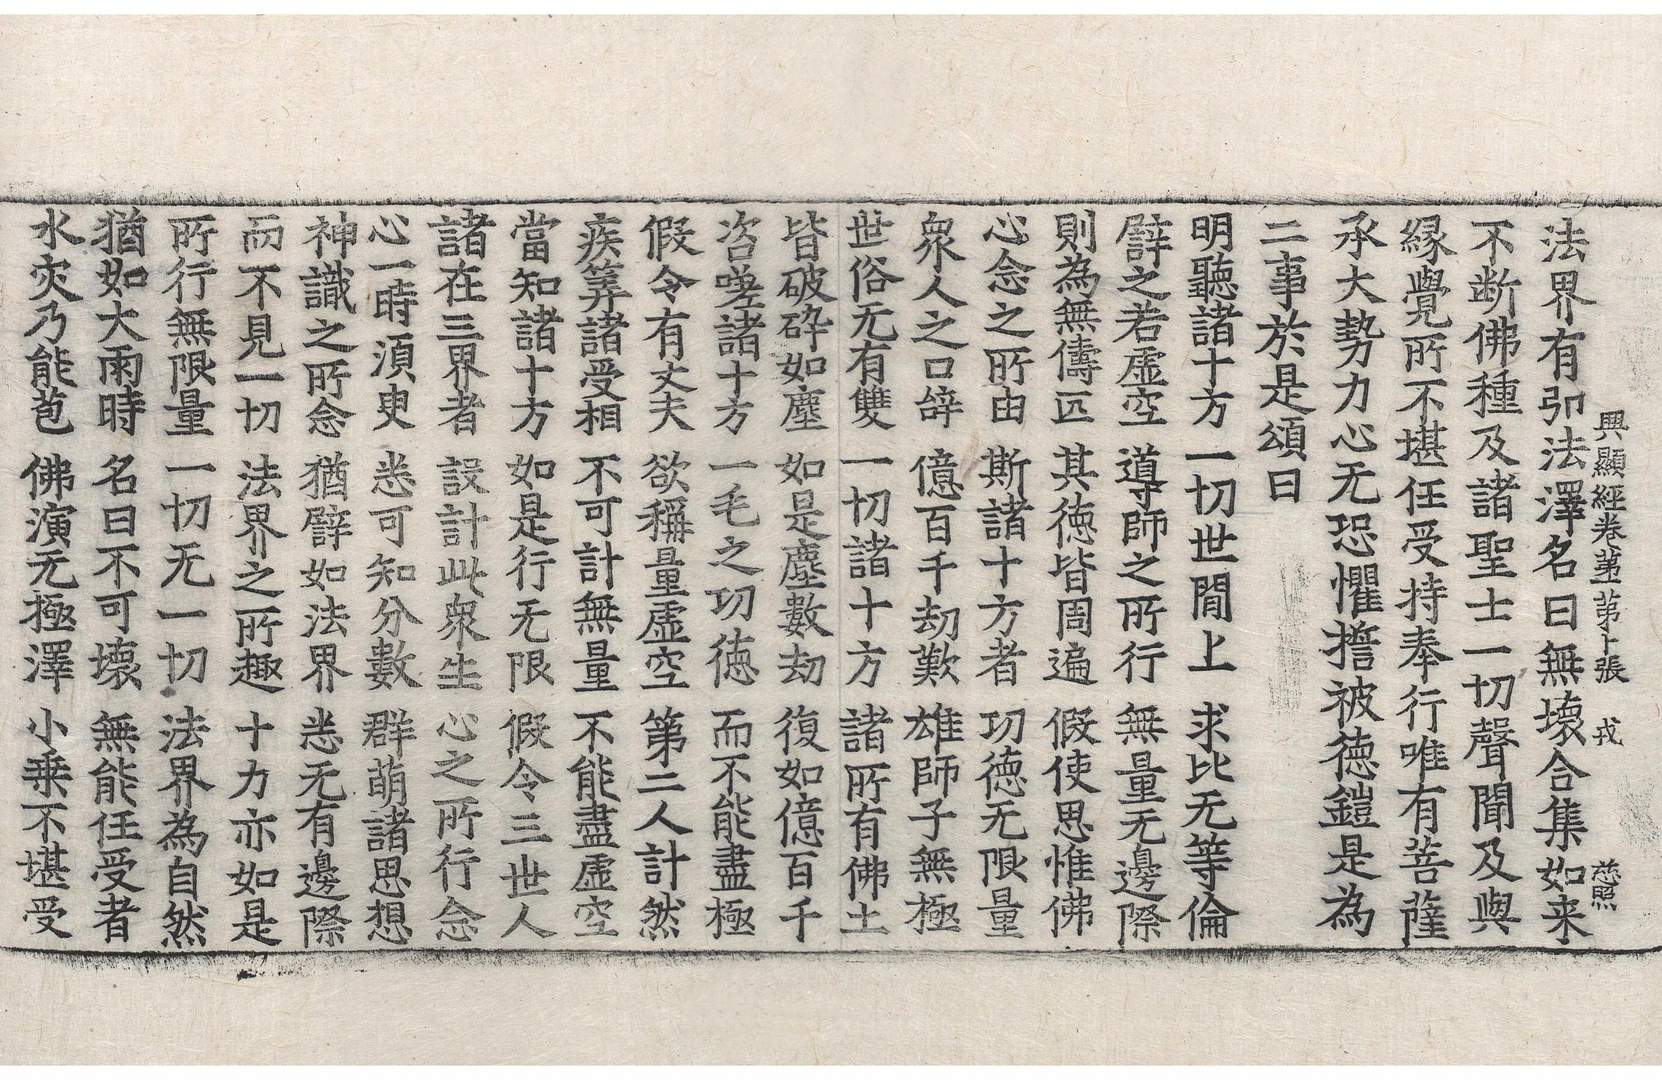 興顯經卷苐一苐十張 戎 慈照
法界有法澤名曰無壞合集如来
不断佛種及諸聖士一切聲聞及與
緣覺所不堪任受持奉行唯有菩薩
承大勢力心无恐懼擔被德鎧是為
二事於是頌曰
明聽諸十方 一切世閒上 求比无等倫
譬之若虛空 導師之所行 無量无邊際
則為無儔匹 其德皆周遍 假使思惟佛
心念之所由 斯諸十方者 功德无限量
衆人之口辝 億百千劫歎 雄師子無極
世俗无有雙 一切諸十方 諸所有佛土
皆破碎如塵 如是塵數劫 復如億百千
咨嗟諸十方 一毛之功德 而不能盡極
假令有丈夫 欲稱量虛空 第二人計然
疾筭諸受相 不可計無量 不能盡虛空
當知諸十方 如是行无限 假令三世人
諸在三界者 設計此衆生 心之所行念
心一時須臾 悉可知分數 群萌諸思想
神識之所念 猶譬如法界 悉无有邊際
而不見一切 法界之所趣 十力亦如是
所行無限量 一切无一切 法界為自然
猶如大雨時 名曰不可壞 無能任受者
水灾乃能苞 佛演无極澤 小乗不堪受